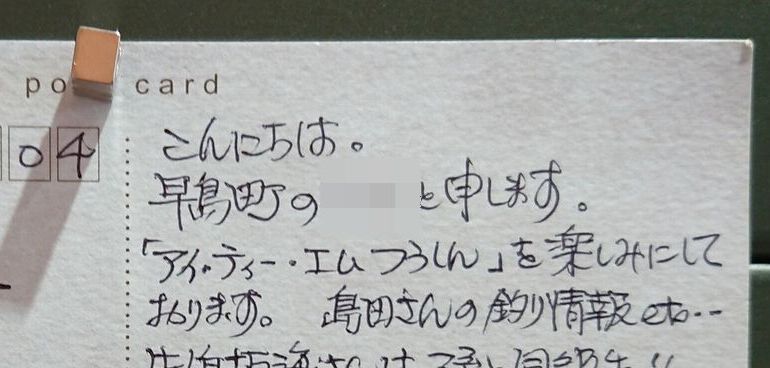 post card
04
こんにちは。
早島町の
と申します。
「アイ・ティー・エムつうしん」を楽しみにして
おります。 島田さんの釣り情報etc‥